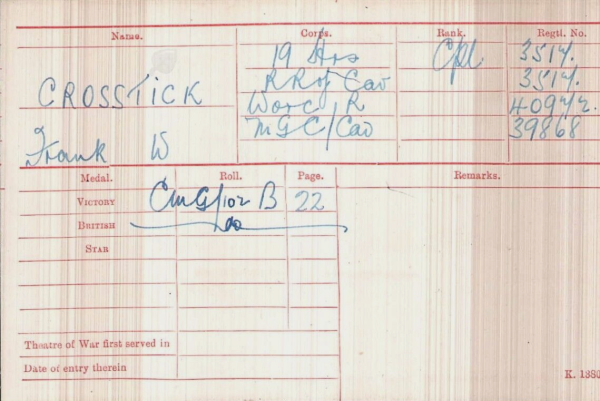 Name. Corps. Rank. Regtl. No.
19 Hrs Cpl 3517.
CROSSTICK R R of Cav 3517.
Worc R 40942.
Frank W MGC/Cav 39868
Medal. Roll. Page. Remarks.
VICTORY CMG/102 B 22
BRITISH do
STAR
Theatre of War first served in
Date of entry therein
K. 1380